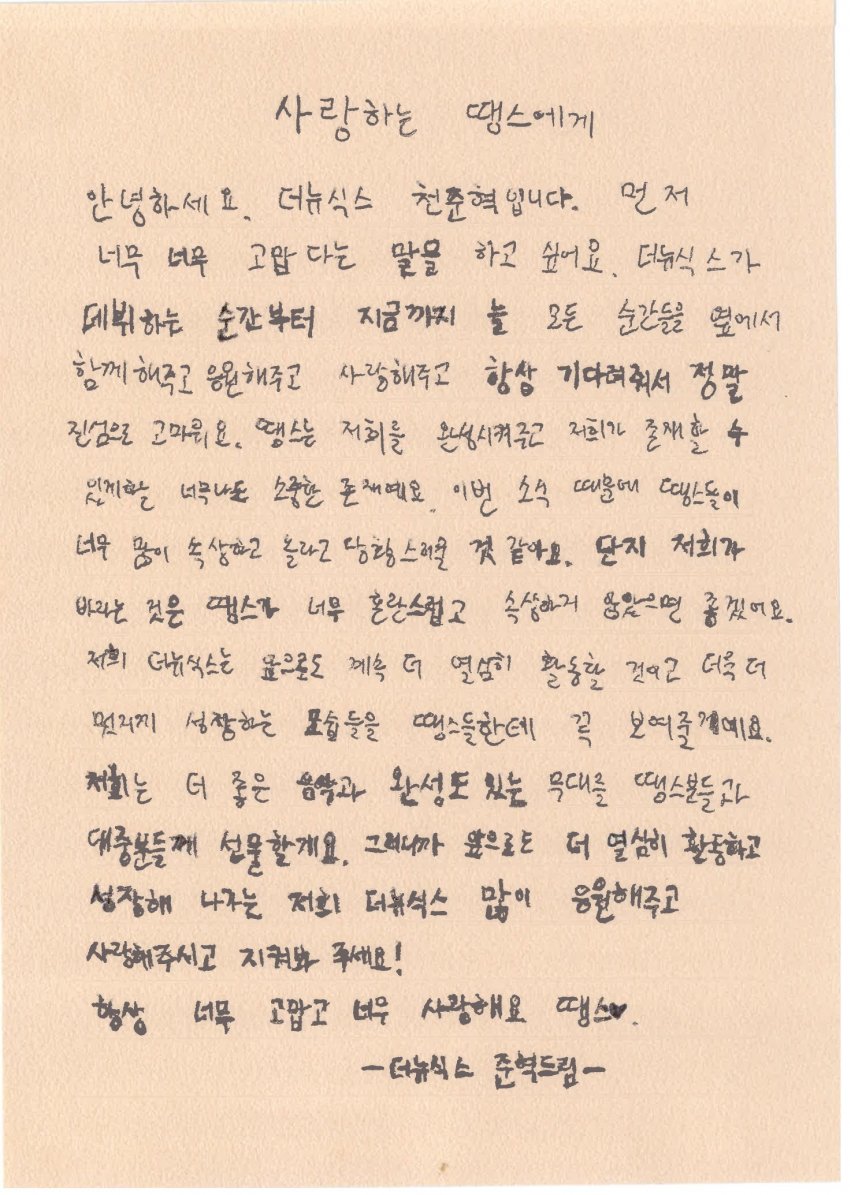 사랑하는 땡스에게
안녕하세요. 더뉴식스 천준혁입니다. 먼저
너무 너무 고맙다는 말을 하고 싶어요. 더뉴식스가
데뷔하는 순간부터 지금까지 늘 모든 순간들을 옆에서
함께해주고 응원해주고 사랑해주고 항상 기다려줘서 정말
진심으로 고마워요. 땡스는 저희를 완성시켜주고 저희가 존재할 수
있게하는 너무나도 소중한 존재예요. 이번 소식 때문에 땡스들이
너무 많이 속상하고 놀라고 당황스러울 것 같아요. 단지 저희가
바라는 것은 땡스가 너무 혼란스럽고 속상하지 않았으면 좋겠어요.
저희 더뉴식스는 앞으로도 계속 더 열심히 활동할 것이고 더욱 더
멋지게 성장하는 모습들을 땡스들한테 꼭 보여줄게예요.
저희는 더 좋은 음악과 완성도 있는 무대를 땡스분들과
대중분들께 선물할게요. 그러니까 앞으로도 더 열심히 활동하고
성장해 나가는 저희 더뉴식스 많이 응원해주고
사랑해주시고 지켜봐 주세요!
항상 너무 고맙고 너무 사랑해요 땡스♥.
-더뉴식스 준혁드림-